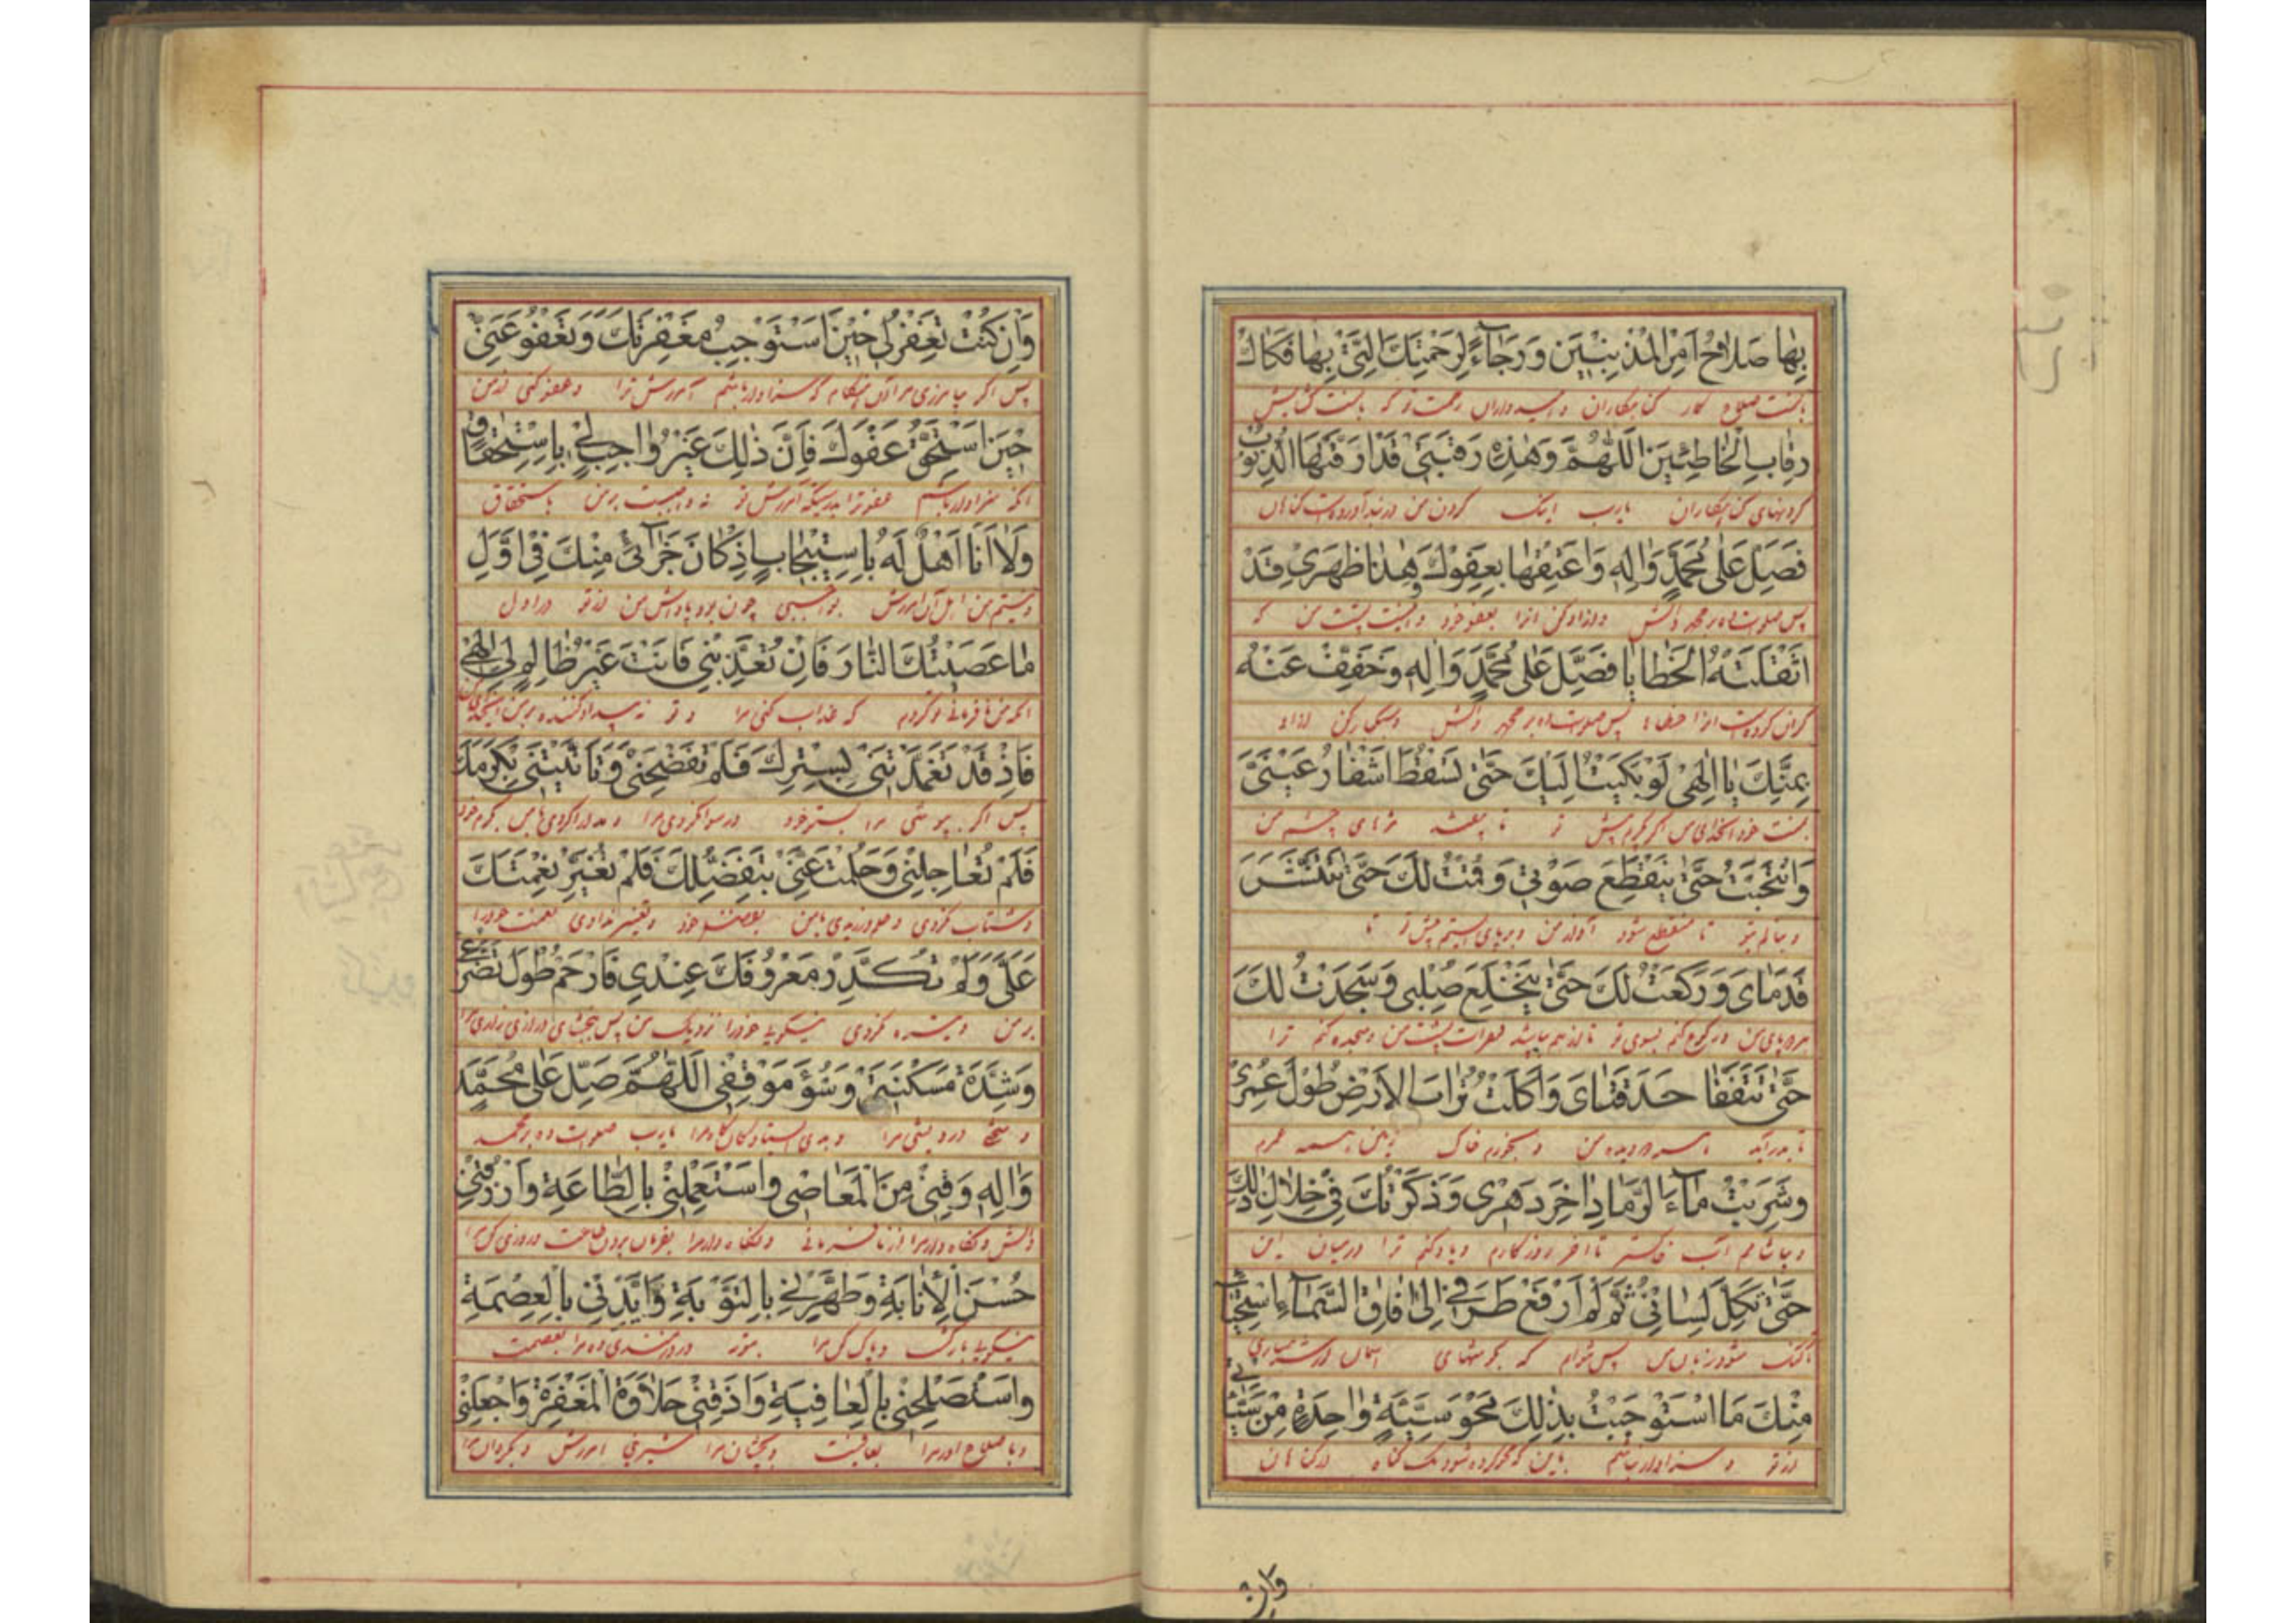 بِهٰا صَلاٰحُ اَمْرِ الْمُذْنِبْيٖنَ وَرَجٰاۤءً لِرَحْمَتِكَ الَّتٖي بِهٰا فَكٰاكُ
باتست صلاح كار كناهكاران و اميدواران رحمت تو كه باتست كشايش
رِقٰابِ الْخٰاطِئٖيٖنَ اَللّٰهُمَّ وَهٰذِهٖ رَقَبَتٖي قَدْ اَرَقَّتْهَا الذُّنُوبُ
كردنهاى كناهكاران يارب اينك كردن من در بند آورده است كناهان
فَصَلِّ عَلٰى مُحَمَّدٍ وَاٰلِهٖ وَاَعْتِقْهٰا بِعَفْوِكَ وَهٰذٰا ظَهْرٖي قَدْ
پس صلوات ده بر محمد و آلش و آزاد كن انرا بعفو خود و اينست پشت من كه
اَثْقَلَتْهُ الْخَطٰايٰا فَصَلِّ عَلٰى مُحَمَّدٍ وَاٰلِهٖ وَخَفِّفْ عَنْهُ
كران كرده است انرا خطاها پس صلوات ده بر محمد و آلش و سبك كن ازاو
بِمَنِّكَ يٰا اِلٰهٖي لَوْ بَكَيْتُ اِلَيْكَ حَتّٰى تَسْقُطَ اَشْفٰارُ عَيْنَيَّ
بمنت خود اى خداى من اكر كريم پيش تو تا بيفتد مژهاى چشم من
وَانْتَحَبْتُ حَتّٰى يَنْقَطِعَ صَوْتٖي وَقُمْتُ لَكَ حَتّٰى تَتَنَشَّرَ
و بنالم بتو تا منقطع شود آواز من و برپاى ايستم پيش تو تا
قَدَمٰايَ وَرَكَعْتُ لَكَ حَتّٰى يَنْخَلِعَ صُلْبٖي وَسَجَدْتُ لَكَ
هر دو پاى من و ركوع كنم بسوى تو تا از هم بپاشد فقرات پشت من و سجده كنم ترا
حَتّٰى تَتَفَقَّأَ حَدَقَتٰايَ وَاَكَلْتُ تُرٰابَ الْاَرْضِ طُولَ عُمْرٖي
تا بدر آيد هر دو ديده من و بخورم خاك زمين همه عمرم
وَشَرِبْتُ مٰاۤءَ الرَّمٰادِ اٰخِرَ دَهْرٖي وَذَكَرْتُكَ فٖي خِلاٰلِ ذٰلِكَ
و بياشامم آب خاكستر تا اخر روزكارم و ياد كنم ترا درميان اين
حَتّٰى يَكِلَّ لِسٰانٖي ثُمَّ لَمْ اَرْفَعْ طَرْفٖي اِلٰى اٰفٰاقِ السَّمٰاۤءِ اسْتِحْيٰاۤءً
تا كنك شود زبان من پس نتوانم كه
مِنْكَ مَا اسْتَوْجَبْتُ بِذٰلِكَ مَحْوَ سَيِّئَةٍ وٰاحِدَةٍ مِنْ سَيِّئٰاتٖي
از تو و سزاوار نباشم باين كه محو كرده شود يك كناه از كناهان
وَاِنْ
وَاِنْ كُنْتَ تَغْفِرُ لٖي حٖيْنَ اَسْتَوْجِبُ مَغْفِرَتَكَ وَتَعْفُو عَنّٖي
پس اكر بيامرزى مرا آن هنكام كه سزاوار باشم آمرزش ترا و عفو كنى از من
حٖيْنَ اَسْتَحِقُّ عَفْوَكَ فَاِنَّ ذٰلِكَ غَيْرُ وٰاجِبٍ لٖي بِاسْتِحْقٰاقٍ
انكه سزاوار باشم عفو ترا بدرستيكه آمرزش تو نه واجبست بر من باستحقاق
وَلاٰ اَنَا اَهْلٌ لَهُ بِاسْتٖيْجٰابٍ اِذْ كٰانَ جَزٰاۤئٖي مِنْكَ فٖي اَوَّلِ
و نيستم من اهل آن امرزش بواجبى چون بود پاداش من از تو در اول
مٰا عَصَيْتُكَ النّٰارَ فَاِنْ تُعَذِّبْنٖي فَاَنْتَ غَيْرُ ظٰالِمٍ لٖي اِلٰهٖي
انكه من نافرمانى تو كردم كه عذاب كنى مرا و تو نه بيداد كننده بر من اى خداى من
فَاِذْ قَدْ تَغَمَّدْتَنٖي بِسِتْرِكَ فَلَمْ تَفْضَحْنٖي وَتَاَنَّيْتَنٖي بِكَرَمِكَ
پس اكر بپوشى مرا بستر خود و رسوا نكردى مرا و مدارا كردى با من بكرم خود
فَلَمْ تُعٰاجِلْنٖي وَحَلُمْتَ عَنّٖي بِتَفَضُّلِكَ فَلَمْ تُغَيِّرْ نِعْمَتَكَ
و شتاب نكردى و حلم ورزيدى بامن بفضل خود و تغيير ندادى نعمت خود را
عَلَيَّ وَلَمْ تُكَدِّرْ مَعْرُوفَكَ عِنْدٖي فَارْحَمْ طُولَ تَضَرُّعٖي
بر من و تيره نكردى نيكويى خود را نزديك من پس ببخشاى درازى زارى مرا
وَشِدَّةَ مَسْكَنَتٖي وَسُوۤءَ مَوْقِفٖي اَللّٰهُمَّ صَلِّ عَلٰى مُحَمَّدٍ
و سختى درويشى مرا و بدى ايستادنكاه مرا يارب صلوات ده بر محمد
وَاٰلِهٖ وَقِنٖي مِنَ الْمَعٰاصٖي وَاسْتَعْمِلْنٖي بِالطّٰاعَةِ وَارْزُقْنٖي
و آلش و نكاه دار مرا از نافرمانى و نكاه دار مرا بفرمان بردن طاعت و روزى كن مرا
حُسْنَ الْاِنٰابَةِ وَطَهِّرْنٖي بِالتَّوْبَةِ وَاَيِّدْنٖي بِالْعِصْمَةِ
نيكويى بازكشت و پاك كن مرا بتوبه و ده مرا بعصمت
وَاسْتَصْلِحْنٖي بِالْعٰافِيَةِ وَاَذِقْنٖي حَلاٰوَةَ الْمَغْفِرَةِ وَاجْعَلْنٖي
و باصلاح آور مرا بعافيت و بچشان مرا شيرينى امرزش و بكردان مرا